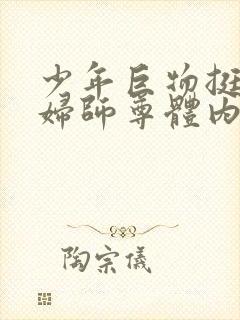 少年巨物挺
婦師尊體内
陶宗儀